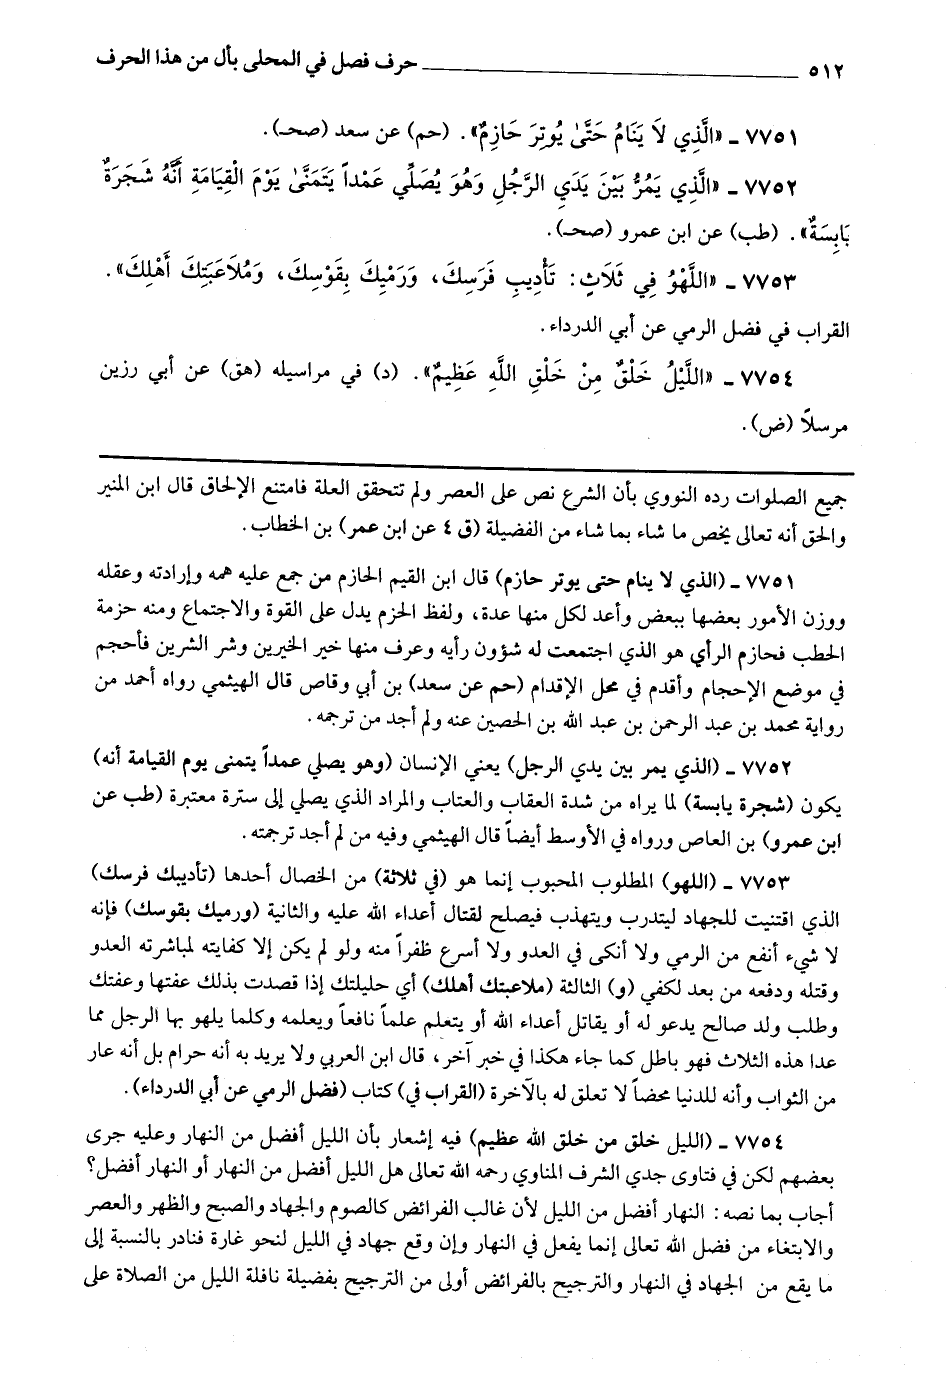 ٥١٢ ــــــــــــــــــــــــــــــــــــــــ حرف فصل في المحلى بأل من هذا الحرف
٧٧٥١ ـ «الَّذِي لاَ يَنَامُ حَتَّىٰ يُوتِرَ حَازِمٌ». (حم) عن سعد (صحـ).
٧٧٥٢ ـ «الَّذِي يَمُرُّ بَيْنَ يَدَيِ الرَّجُلِ وَهُوَ يُصَلِّي عَمْداً يَتَمَنَّىٰ يَوْمَ الْقِيَامَةِ أَنَّهُ شَجَرَةٌ
يَابِسَةٌ». (طب) عن ابن عمرو (صحـ).
٧٧٥٣ ـ «اللَّهْوُ فِي ثَلَاثٍ: تَأْدِيبِ فَرَسِكَ، وَرَمْيِكَ بِقَوْسِكَ، وَمُلاَعَبَتِكَ أَهْلِكَ».
القراب في فضل الرمي عن أبي الدرداء.
٧٧٥٤ ـ «اللَّيْلُ خَلْقٌ مِنْ خَلْقِ اللَّهِ عَظِيمٌ». (د) في مراسيله (هق) عن أبي رزين
مرسلاً (ض).
جميع الصلوات رده النووي بأن الشرع نص على العصر ولم تتحقق العلة فامتنع الإلحاق قال ابن المنير
والحق أنه تعالى يخص ما شاء بما شاء من الفضيلة (ق ٤ عن ابن عمر) بن الخطاب.
٧٧٥١ ـ (الذي لا ينام حتى يوتر حازم) قال ابن القيم الحازم من جمع عليه همه وإرادته وعقله
ووزن الأمور بعضها ببعض وأعد لكل منها عدة، ولفظ الحزم يدل على القوة والاجتماع ومنه حزمة
الحطب فحازم الرأي هو الذي اجتمعت له شؤون رأيه وعرف منها خير الخيرين وشر الشرين فأحجم
في موضع الإحجام وأقدم في محل الإقدام (حم عن سعد) بن أبي وقاص قال الهيثمي رواه أحمد من
رواية محمد بن عبد الرحمن بن عبد الله بن الحصين عنه ولم أجد من ترجمه.
٧٧٥٢ ـ (الذي يمر بين يدي الرجل) يعني الإنسان (وهو يصلي عمداً يتمنى يوم القيامة أنه)
يكون (شجرة يابسة) لما يراه من شدة العقاب والعتاب والمراد الذي يصلي إلى سترة معتبرة (طب عن
ابن عمرو) بن العاص ورواه في الأوسط أيضاً قال الهيثمي وفيه من لم أجد ترجمته.
٧٧٥٣ ـ (اللهو) المطلوب المحبوب إنما هو (في ثلاثة) من الخصال أحدها (تأديبك فرسك)
الذي اقتنيت للجهاد ليتدرب ويتهذب فيصلح لقتال أعداء الله عليه والثانية (ورميك بقوسك) فإنه
لا شيء أنفع من الرمي ولا أنكى في العدو ولا أسرع ظفراً منه ولو لم يكن إلا كفايته لمباشرته العدو
وقتله ودفعه من بعد لكفي (و) الثالثة (ملاعبتك أهلك) أي حليلتك إذا قصدت بذلك عفتها وعفتك
وطلب ولد صالح يدعو له أو يقاتل أعداء الله أو يتعلم علماً نافعاً ويعلمه وكلما يلهو بها الرجل مما
عدا هذه الثلاث فهو باطل كما جاء هكذا في خبر آخر، قال ابن العربي ولا يريد به أنه حرام بل أنه عار
من الثواب وأنه للدنيا محضاً لا تعلق له بالآخرة (القراب في) كتاب (فضل الرمي عن أبي الدرداء).
٧٧٥٤ ـ (الليل خلق من خلق الله عظيم) فيه إشعار بأن الليل أفضل من النهار وعليه جرى
بعضهم لكن في فتاوى جدي الشرف المناوي رحمه الله تعالى هل الليل أفضل من النهار أو النهار أفضل؟
أجاب بما نصه: النهار أفضل من الليل لأن غالب الفرائض كالصوم والجهاد والصبح والظهر والعصر
والابتغاء من فضل الله تعالى إنما يفعل في النهار وإن وقع جهاد في الليل لنحو غارة فنادر بالنسبة إلى
ما يقع من الجهاد في النهار والترجيح بالفرائض أولى من الترجيح بفضيلة نافلة الليل من الصلاة على